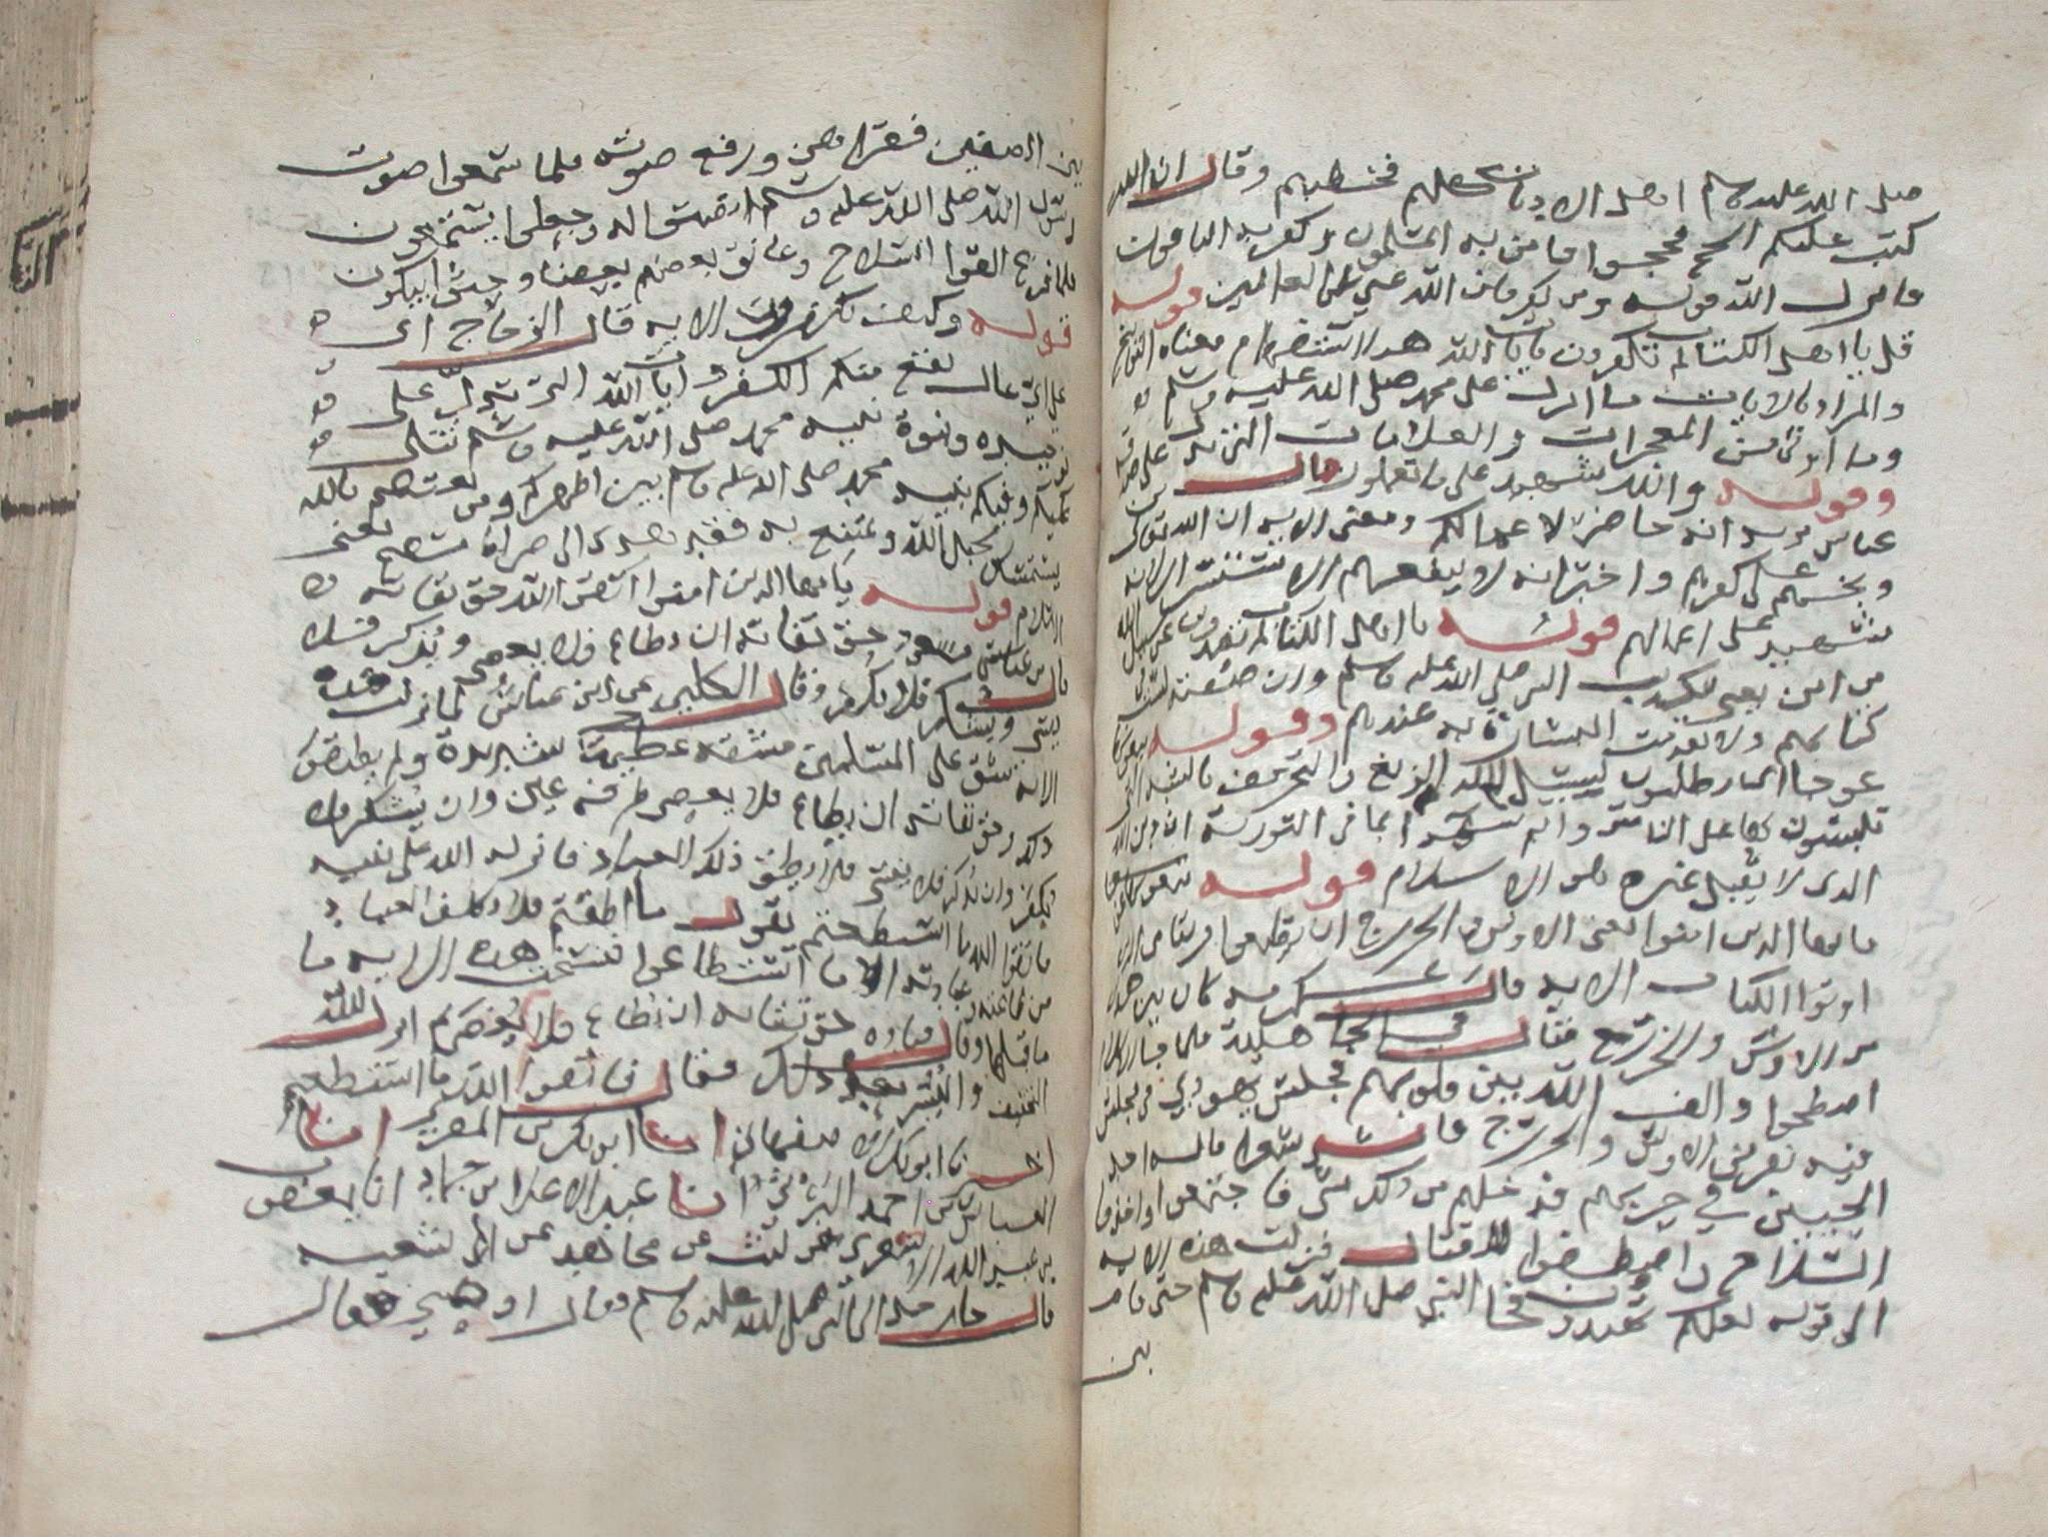 صلى الله عليه وسلم اهل الاديان كلهم فخطبهم وقال ان الله
كتب عليكم الحج فحجوا فامن به المسلمون وكفر به الباقون
فانزل الله قوله ومن كفر فان الله غني عن العالمين قوله
قل يا اهل الكتاب لم تكفرون بايات الله هذا استفهام معناه التوبيخ
والمراد بالايات ما انزل على محمد صلى الله عليه وسلم
وما اوتي من المعجرات والعلامات التي تدل على صدقه
وقوله والله شهيد على ما تعملون قال بن
عباس يريد انه حاضر لاعمالكم ومعنى الايه ان الله تعالى
على كفرهم واخبر انه لا ينفعهم الاستسرار لانه
شهيد على اعمالهم قوله يا اهل الكتاب لم تصدون عن سبيل الله
من امن يعني بتكذيب النبي صلى الله عليه وسلم وان صفته ليست في
كتابهم ولا تقدمت البشارة به عندهم وقوله تبغونها
عوجا اي تطلبون لسبيل الله الزيغ والتحريف بالشبه التي
تلبسون بها على الناس وانتم شهدا بما في التورية ان دين الله
الذي لا يقبل غيره هو الاسلام قوله
يا ايها الذين امنوا يعني الاوس والخزرج ان تطيعوا فريقا من الذين
اوتوا الكتاب الايه قال عكرمه كان بين هذين
من الاوس والخزرج قتال في الجاهلية فلما جا الاسلام
اصطلحوا والف الله بين قلوبهم فجلس يهودي في مجلس
فيه نفر من الاوس والخزرج فانشد شعرا قاله احد
الحيين في حربهم فدخلهم من ذلك شي فاجتمعوا واخذوا
السلاح واصطفوا للقتال فنزلت هذه الايه
الى قوله لعلكم تهتدون فجا النبي صلى الله عليه وسلم حتى قام
بين
بين الصفين فقراهن ورفع صوته فلما سمعوا صوت
رسول الله صلى الله عليه وسلم انصتوا له وجعلوا يستمعون
فلما فرغ القوا السلاح وعانق بعضهم بعضا وجثوا يبكون
قوله وكيف تكفرون الايه قال الزجاج اي
على اي حال يقع منكم الكفر وايات الله التي تدل على
توحيده ونبوة نبيه محمد صلى الله عليه وسلم تتلى
عليكم وفيكم نبيه محمد صلى الله عليه وسلم بين اظهركم ومن يعتصم بالله
يستمسك بحبل الله ويمتنع به فقد هدى الى صراط مستقيم يعني
الاسلام قوله يا ايها الذين امنوا اتقوا الله حق تقاته
قال بن مسعود حق تقاته ان يطاع فلا يعصى ويذكر فلا
ينسى ويشكر فلا يكفر وقال الكلبي عن ابن عباس لما نزلت هذه
الايه شق على المسلمين مشقه عظيمة شديدة ولم يطيقوا
ذلك وحق تقاته ان يطاع فلا يعصى طرفه عين وان يشكر فلا
يكفر وان يذكر فلا ينسى فلا يطيق ذلك العباد فانزل الله على نبيه
فاتقوا الله ما استطعتم يقول ما اطقتم فلا يكلف العباد
من طاعته وعبادته الا ما استطاعوا فنسخت هذه الايه ما
ما قبلها وقال قتاده حق تقاته ان يطاع فلا يعصى ثم انزل الله
التخفيف واليسر بعد ذلك فقال فاتقوا الله ما استطعتم
ابو بكر انا ابو بكر بن انا
العباس بن احمد انا عبد الاعلا بن حماد انا يعقوب
بن عبد الله الاشعري عن ليث عن مجاهد عن ابي سعيد
قال جا رجل الى النبي صلى الله عليه وسلم فقال اوصني فقال